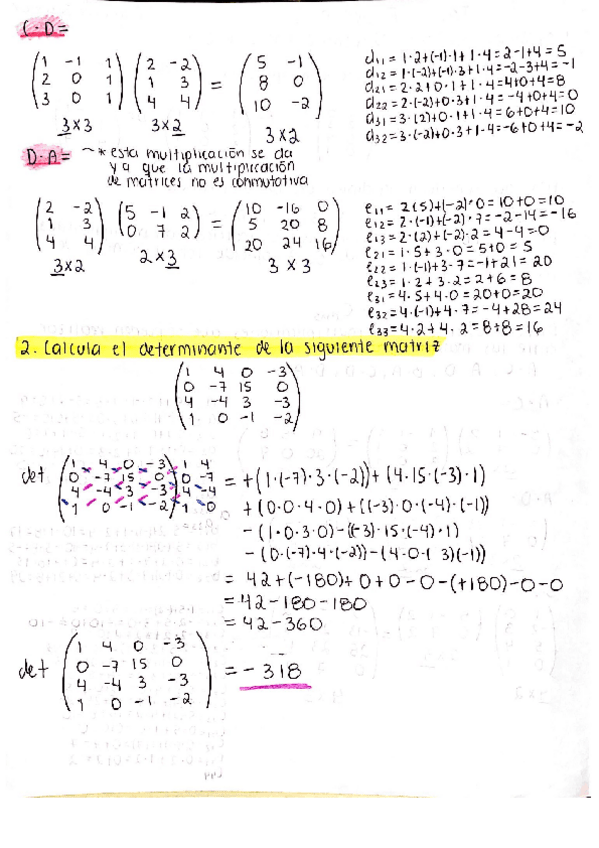 C·D=
(1 -1 1) (2 -2) (5 -1)
(2 0 1) (1 3) = (8 0)
(3 0 1) (4 4) (10 -2)
3×3 3×2 3×2
d₁₁ = 1·2+(-1)·1+1·4=2-1+4=5
d₁₂ = 1·(-2)+(-1)·3+1·4=-2-3+4=-1
d₂₁ = 2·2+0·1+1·4=4+0+4=8
d₂₂ = 2·(-2)+0·3+1·4=-4+0+4=0
d₃₁ = 3·(2)+0·1+1·4=6+0+4=10
d₃₂ = 3·(-2)+0·3+1·4=-6+0+4=-2
D·A= ~*esta multiplicación se da
y a que la multiplicación
de matrices no es conmutativa
(2 -2) (5 -1 2) (10 -16 0)
(1 3) (0 7 2) = (5 20 8)
(4 4) (20 24 16)
3×2 2×3 3×3
e₁₁ = 2(5)+(-2)·0=10+0=10
e₁₂ = 2·(-1)+(-2)·7=-2-14=-16
e₁₃ = 2·(2)+(-2)·2=4-4=0
e₂₁ = 1·5+3·0=5+0=5
e₂₂ = 1·(-1)+3·7=-1+21=20
e₂₃ = 1·2+3·2=2+6=8
e₃₁ = 4·5+4·0=20+0=20
e₃₂ = 4·(-1)+4·7=-4+28=24
e₃₃ = 4·2+4·2=8+8=16
2. Calcula el determinante de la siguiente matriz
(1 4 0 -3)
(0 -7 15 0)
(4 -4 3 -3)
(1 0 -1 -2)
det (1 4 0 -3) 1 4
(0 -7 15 0) 0 -7
(4 -4 3 -3) 4 -4
(1 0 -1 -2) 1 0
= +(1·(-7)·3·(-2))+(4·15·(-3)·1)
+(0·0·4·0)+((-3)·0·(-4)·(-1))
-(1·0·3·0)-((-3)·15·(-4)·1)
-(0·(-7)·4·(-2))-(4·0·( 3)(-1))
= 42+(-180)+0+0-0-(+180)-0-0
= 42-180-180
= 42-360
det (1 4 0 -3)
(0 -7 15 0) = -318
(4 -4 3 -3)
(1 0 -1 -2)